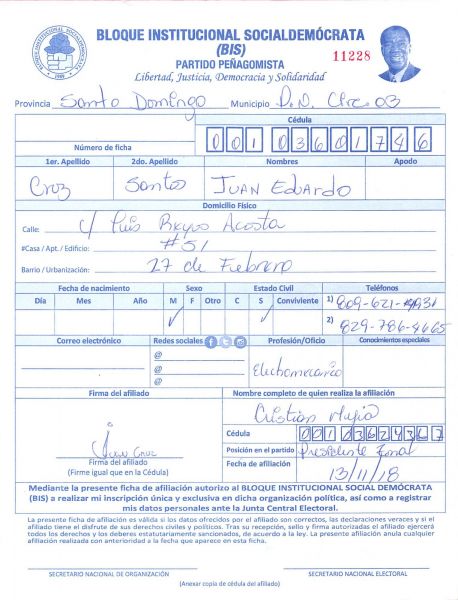 BLOQUE INSTITUCIONAL SOCIALDEMÓCRATA
(BIS)
PARTIDO PEÑAGOMISTA
11228
Libertad, Justicia, Democracia y Solidaridad
Provincia Santo Domingo Municipio D.N. Circ 03
Cédula
Número de ficha 001 0360174 6
1er. Apellido 2do. Apellido Nombres Apodo
Cruz Santos Juan Eduardo
Domicilio Físico
Calle: C/ Luis Reyes Acosta
#Casa / Apt. / Edificio: #51
Barrio / Urbanización: 27 de Febrero
Fecha de nacimiento Sexo Estado Civil Teléfonos
Día Mes Año M F Otro C S Conviviente 1) 809-621-4931
2) 829-786-4665
Correo electrónico Redes sociales Profesión/Oficio Conocimientos especiales
@
@ Electromecanico
@
Firma del afiliado Nombre completo de quien realiza la afiliación
Cristian Mejia
Cédula
001 0362436 7
Juan Cruz Posición en el partido Presidente Zonal
Firma del afiliado
(Firme igual que en la Cédula) Fecha de afiliación 13/11/18
Mediante la presente ficha de afiliación autorizo al BLOQUE INSTITUCIONAL SOCIAL DEMÓCRATA
(BIS) a realizar mi inscripción única y exclusiva en dicha organización política, así como a registrar
mis datos personales ante la Junta Central Electoral.
La presente ficha de afiliación es válida si los datos ofrecidos por el afiliado son correctos, las declaraciones veraces y si el
afiliado tiene el disfrute de sus derechos civiles y políticos. Tras su recepción, sello y firma autorizadas el afiliado ejercerá
todos los derechos y los deberes estatutariamente sancionados, de acuerdo a la ley. La presente afiliación anula cualquier
afiliación realizada con anterioridad a la fecha que aparece en esta ficha.
SECRETARIO NACIONAL DE ORGANIZACIÓN SECRETARIO NACIONAL ELECTORAL
(Anexar copia de cédula del afiliado)